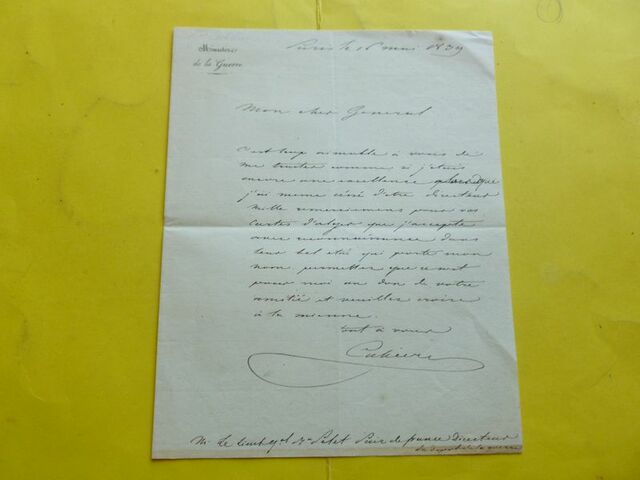 Ministère
de la Guerre
Paris le 16 mai 1839
Mon cher General
C'est trop aimable à vous de
me traiter comme si j'etais
encore une excellence alors que
j'ai meme cessé d'etre directeur
mille remerciemens pour vos
cartes d'alger que j'accepte
avec reconnaissance dans
leur bel etui qui porte mon
nom. permettez que ce soit
pour moi un don de votre
amitié et veuillez croire
à la mienne.
tout à vous
Cubières
Mr Le Lieut Gal Bon Pelet Pair de france Directeur
du depot de la guerre